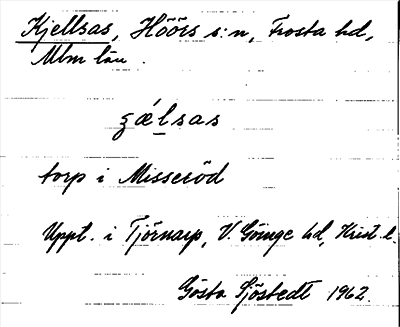 Kjellsas, Höörs s:n, Frosta hd,
Mlm län.
ʒælsas
torp i Misseröd
Uppt. i Tjörnarp, V. Göinge hd, Krist. l.
Gösta Sjöstedt 1962.